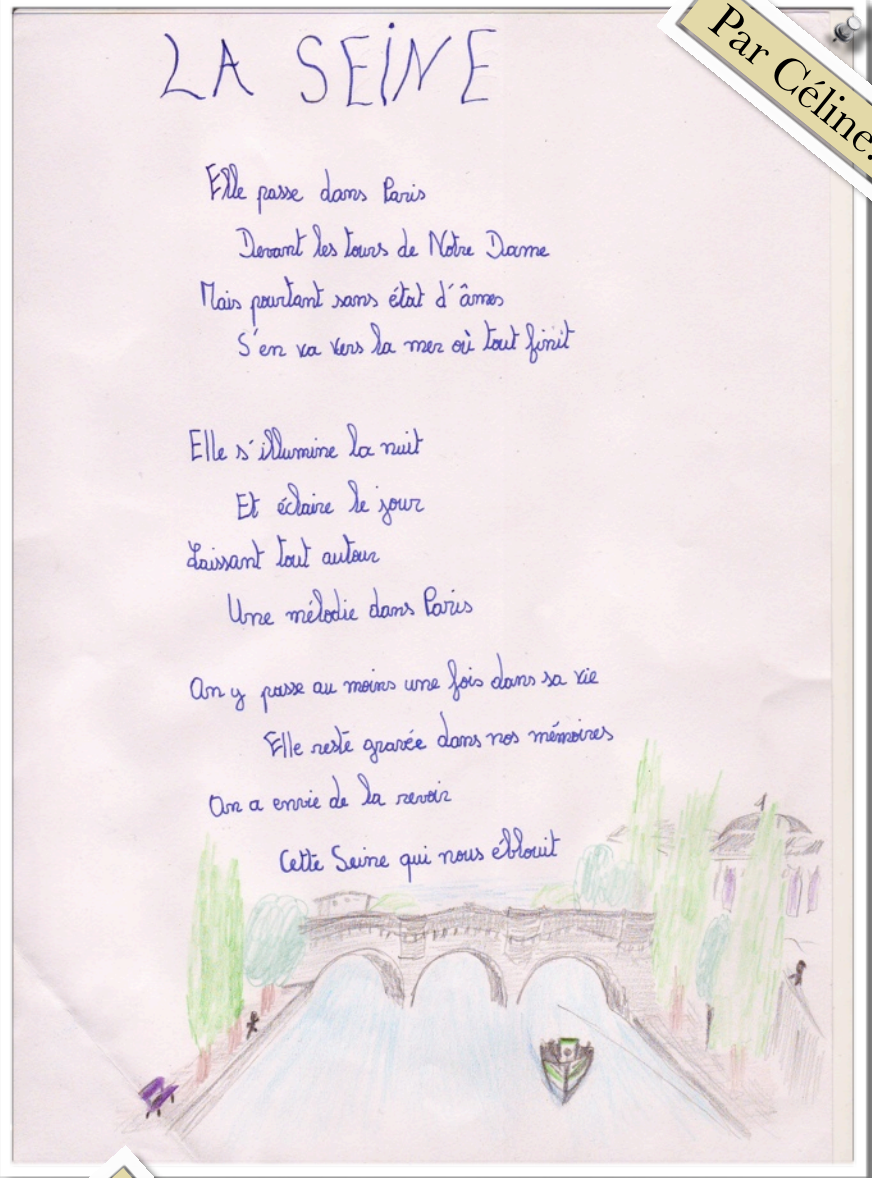 LA SEINE
Par Céline.
Elle passe dans Paris
Devant les tours de Notre Dame
Mais pourtant sans état d'âmes
S'en va vers la mer où tout finit
Elle s'illumine la nuit
Et éclaire le jour
Laissant tout autour
Une mélodie dans Paris
On y passe au moins une fois dans sa vie
Elle reste gravée dans nos mémoires
On a envie de la revoir
Cette Seine qui nous éblouit